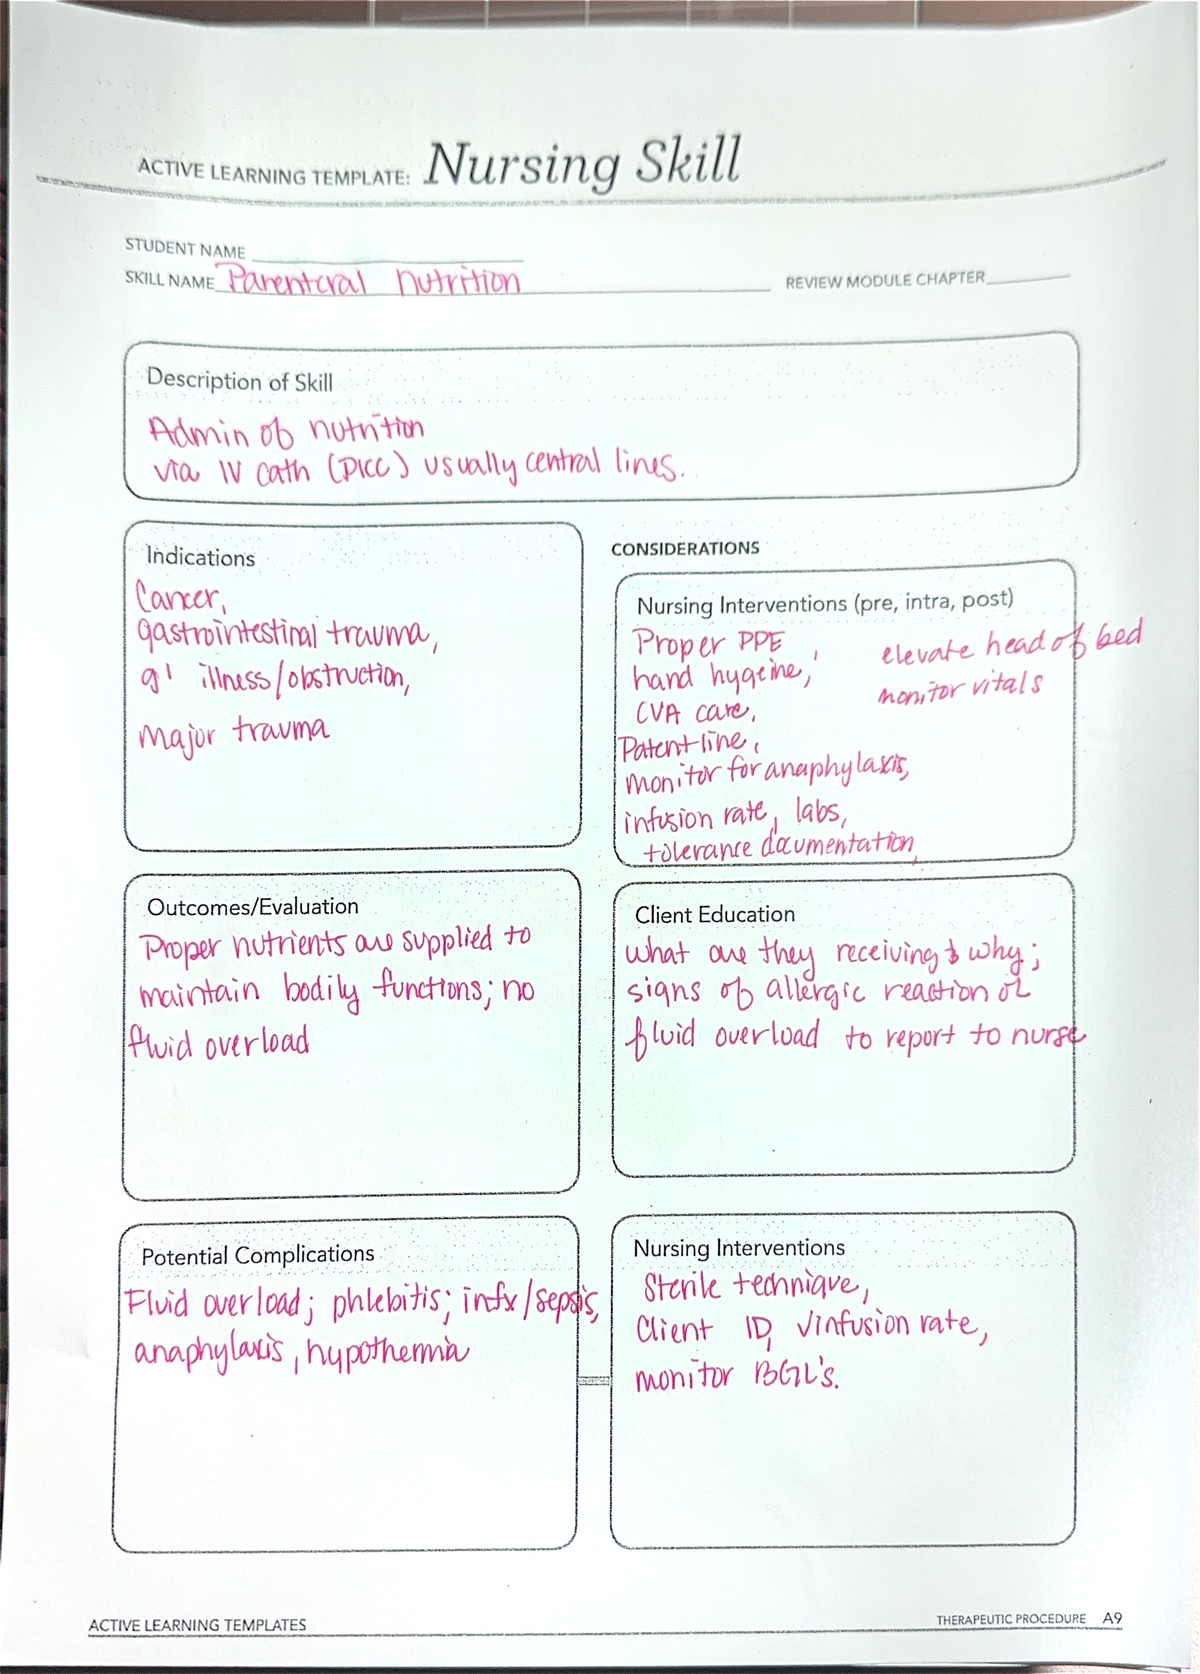 ACTIVE LEARNING TEMPLATE: Nursing Skill
STUDENT NAME
SKILL NAME Parenteral nutrition
REVIEW MODULE CHAPTER
Description of Skill
Admin of nutrition
via IV cath (PICC) usually central lines.
Indications
Cancer,
gastrointestinal trauma,
gI illness/obstruction,
Major trauma
CONSIDERATIONS
Nursing Interventions (pre, intra, post)
Proper PPE,
hand hygeine,
CVA care,
Patent line,
monitor for anaphylaxis,
infusion rate, labs,
tolerance documentation,
elevate head of bed
monitor vitals
Outcomes/Evaluation
Proper nutrients are supplied to
maintain bodily functions; no
fluid overload
Client Education
What are they receiving & why;
signs of allergic reaction or
fluid overload to report to nurse
Potential Complications
Fluid overload; phlebitis; infx/sepsis,
anaphylaxis, hypothermia
Nursing Interventions
Sterile technique,
Client ID, √infusion rate,
monitor BGL's.
ACTIVE LEARNING TEMPLATES
THERAPEUTIC PROCEDURE A9